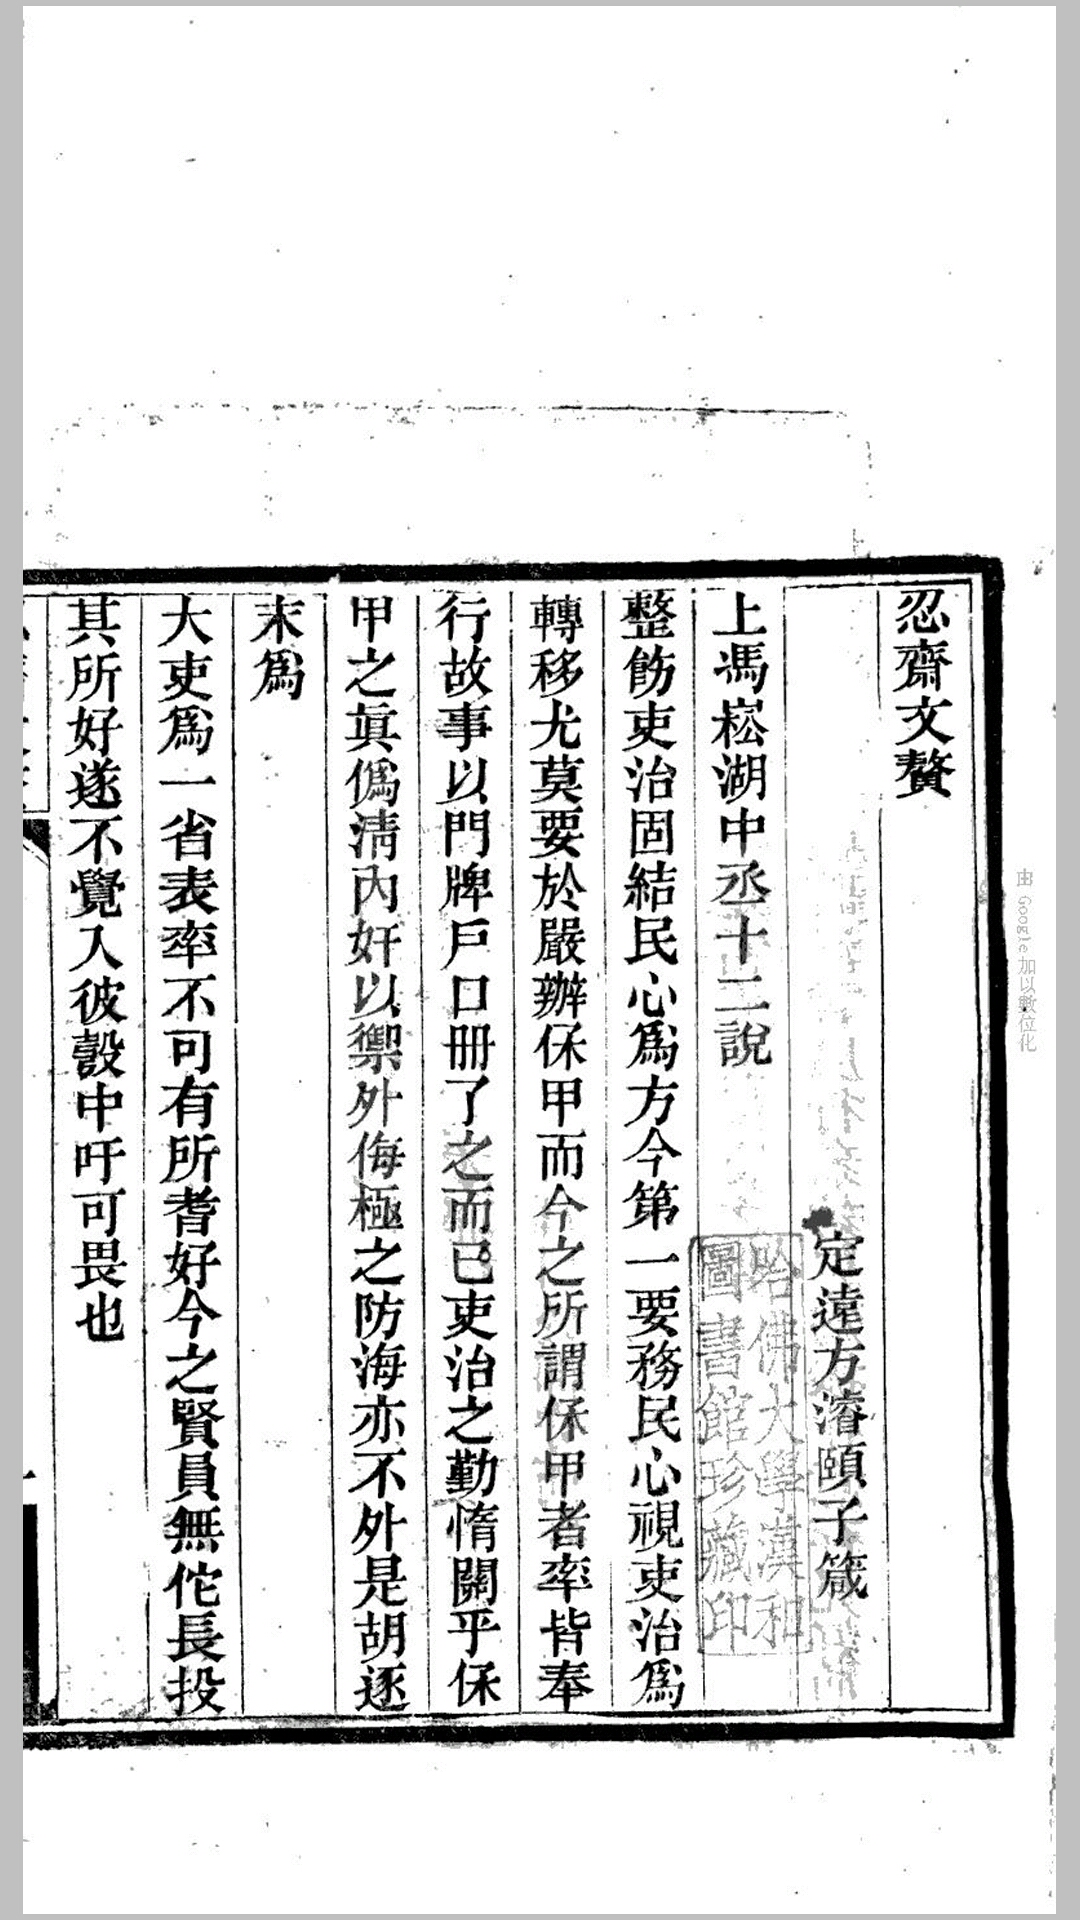 忍齋文贅
定遠方濬頤子箴
上馮崧湖中丞十二說
整飭吏治固結民心爲方今第一要務民心視吏治爲
轉移尤莫要於嚴辦保甲而今之所謂保甲者率皆奉
行故事以門牌戶口冊了之而已吏治之勤惰關乎保
甲之眞僞淸內奸以禦外侮極之防海亦不外是胡逐
末爲
大吏爲一省表率不可有所耆好今之賢員無佗長投
其所好遂不覺入彼彀中吁可畏也
哈佛大學漢和
圖書館珍藏印
由 Google 加以數位化